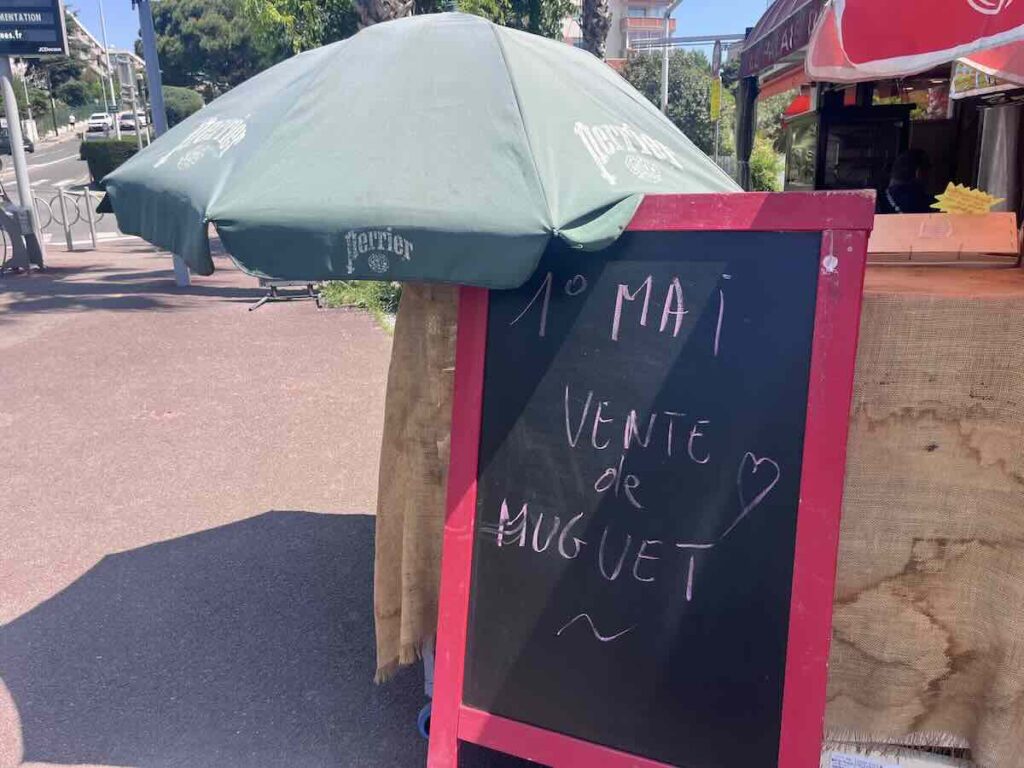 MENTATION
nes.fr
JCDecaux
perrier
perrier
perrier
1° MAI
VENTE
de
MUGUET
~